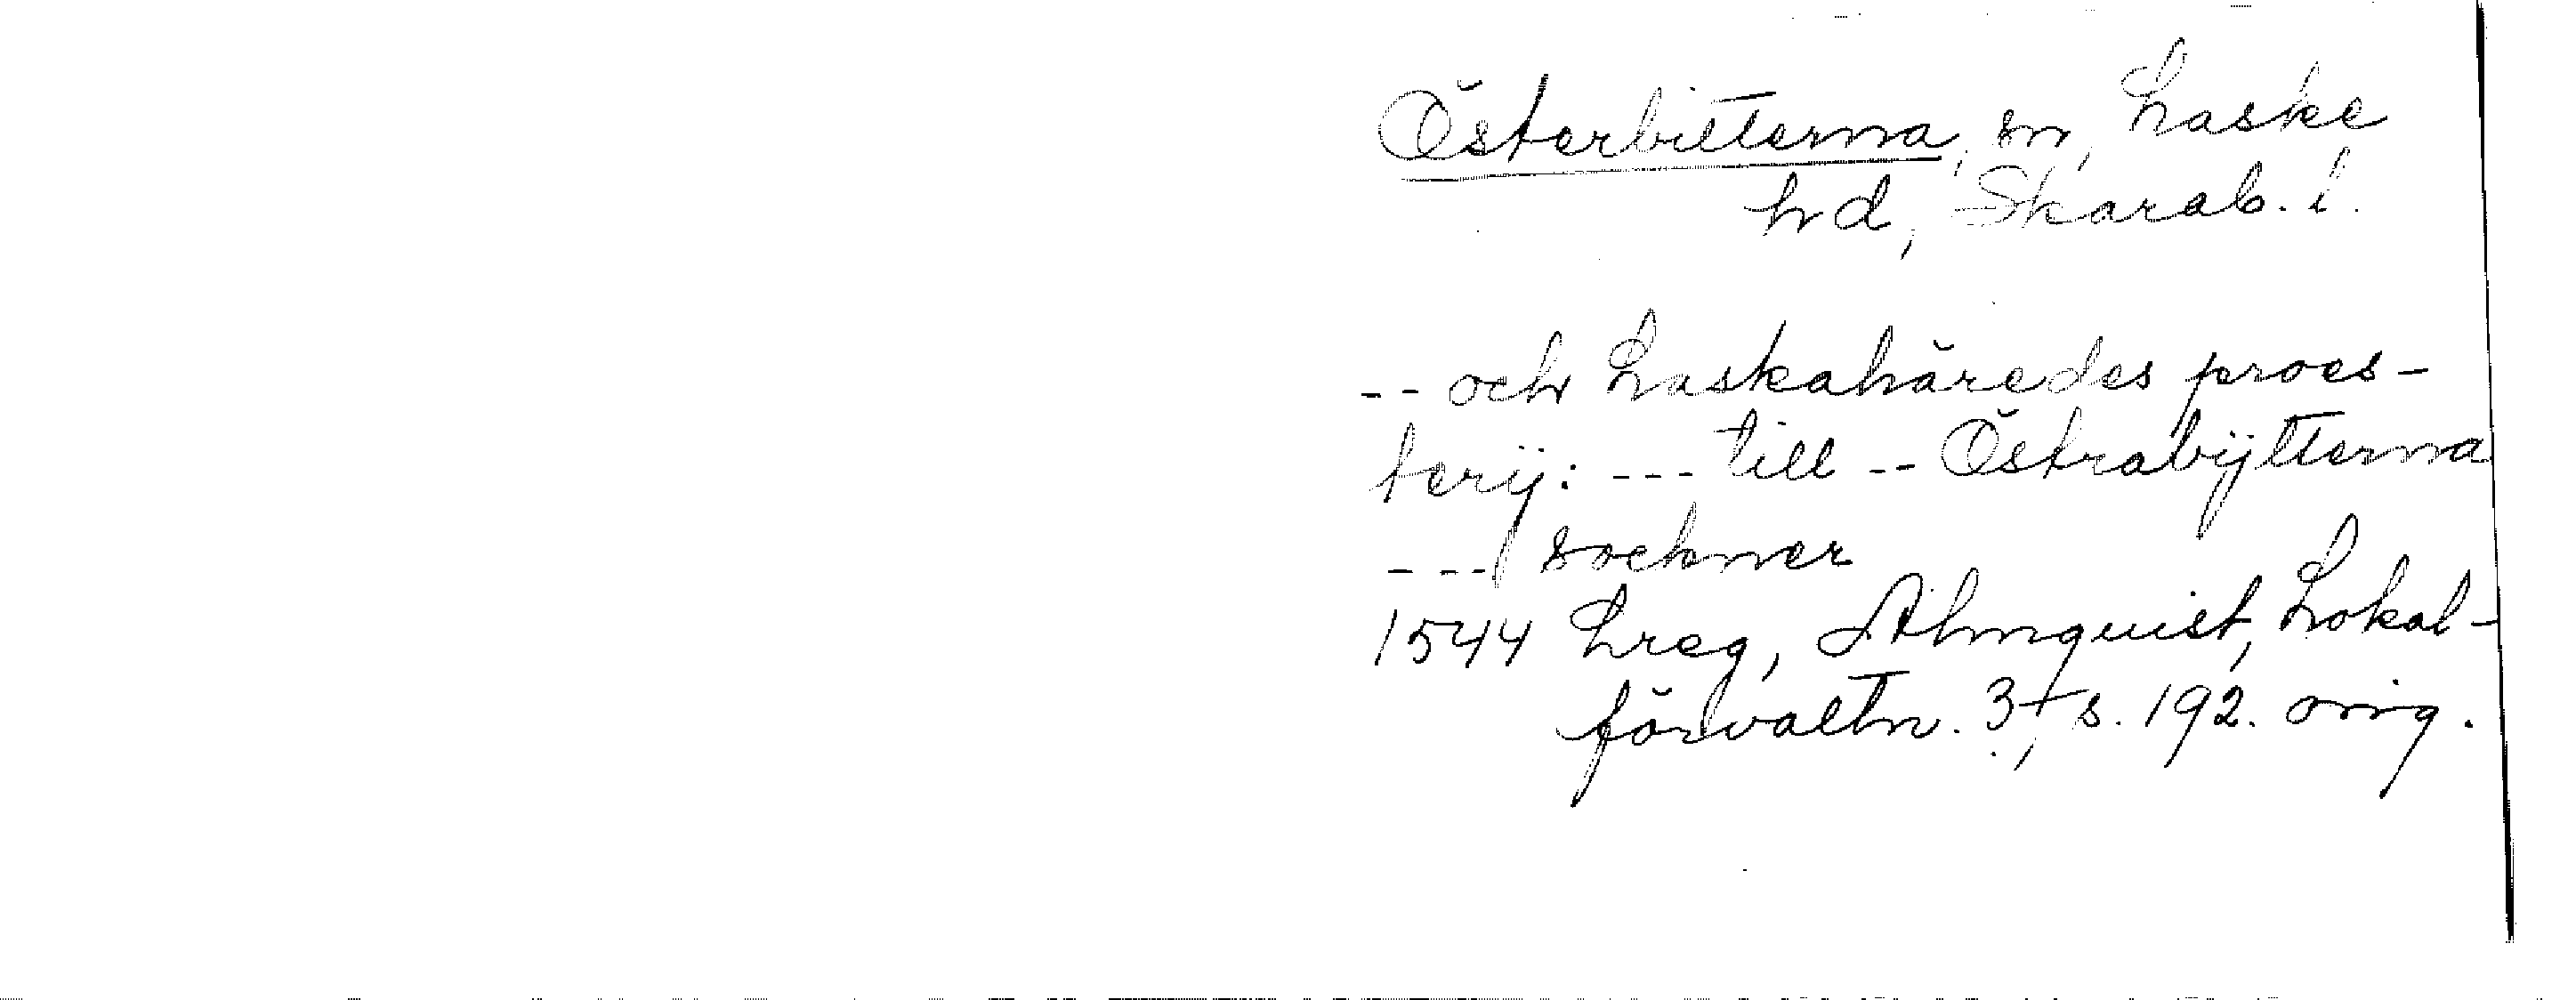 Österbitterna, sn, Laske
hd, Skarab. l.
-- och Laskahäredes proes-
terÿ: --- till -- Östrabÿtterna
--- sockner
1544 Lreg, Almquist, Lokal-
förvaltn. 3, s. 192. orig.